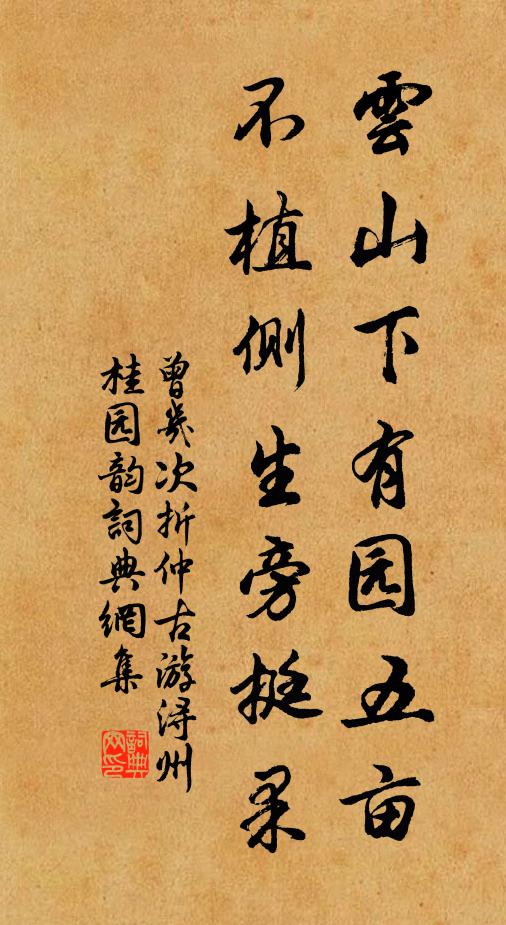 雲山下有园五亩
不植側生旁挺果
曾幾次折仲古游浔州
桂园韵詞典網集
詞典
网印